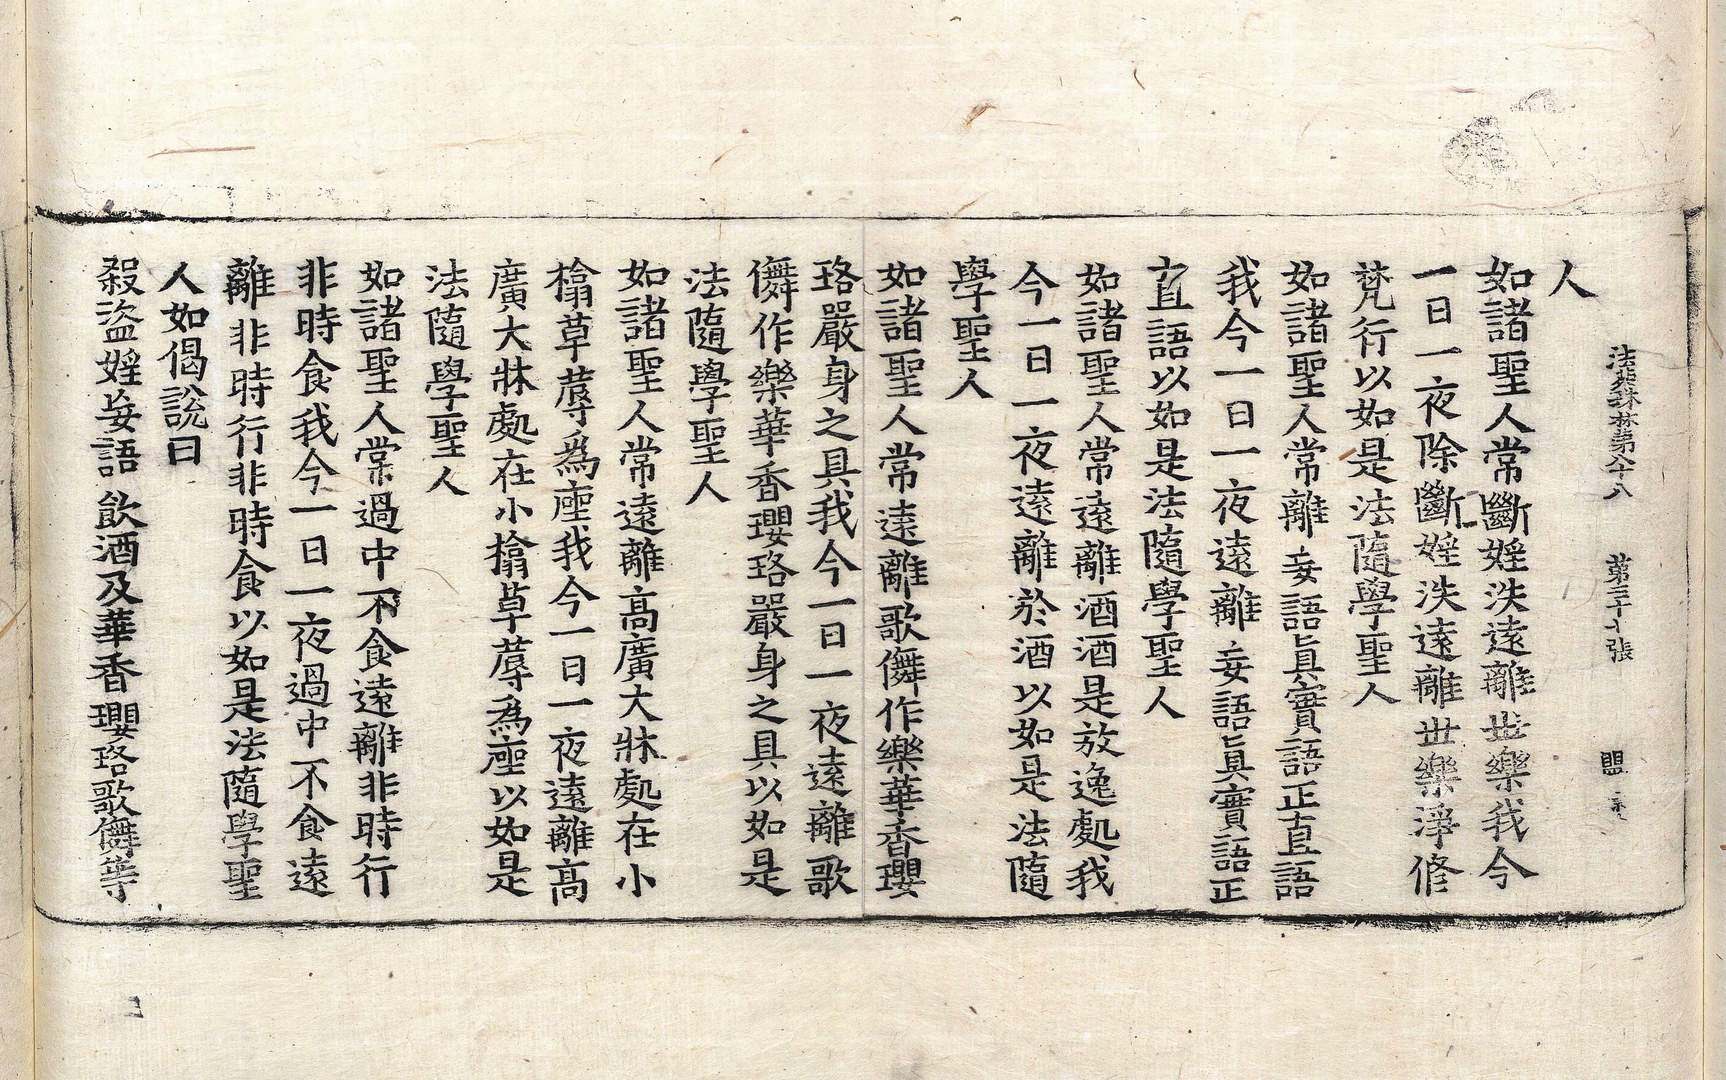 法苑珠林第八十八 第三十七張 盟
人
如諸聖人常斷婬泆遠離世樂我今
一日一夜除斷婬泆遠離世樂淨修
梵行以如是法隨學聖人
如諸聖人常離妄語眞實語正直語
我今一日一夜遠離妄語眞實語正
直語以如是法隨學聖人
如諸聖人常遠離酒酒是放逸處我
今一日一夜遠離於酒以如是法隨
學聖人
如諸聖人常遠離歌儛作樂華香瓔
珞嚴身之具我今一日一夜遠離歌
儛作樂華香瓔珞嚴身之具以如是
法隨學聖人
如諸聖人常遠離高廣大牀處在小
榻草蓐爲座我今一日一夜遠離高
廣大牀處在小榻草蓐爲座以如是
法隨學聖人
如諸聖人常過中不食遠離非時行
非時食我今一日一夜過中不食遠
離非時行非時食以如是法隨學聖
人如偈說曰
殺盜婬妄語 飲酒及華香瓔珞歌儛等